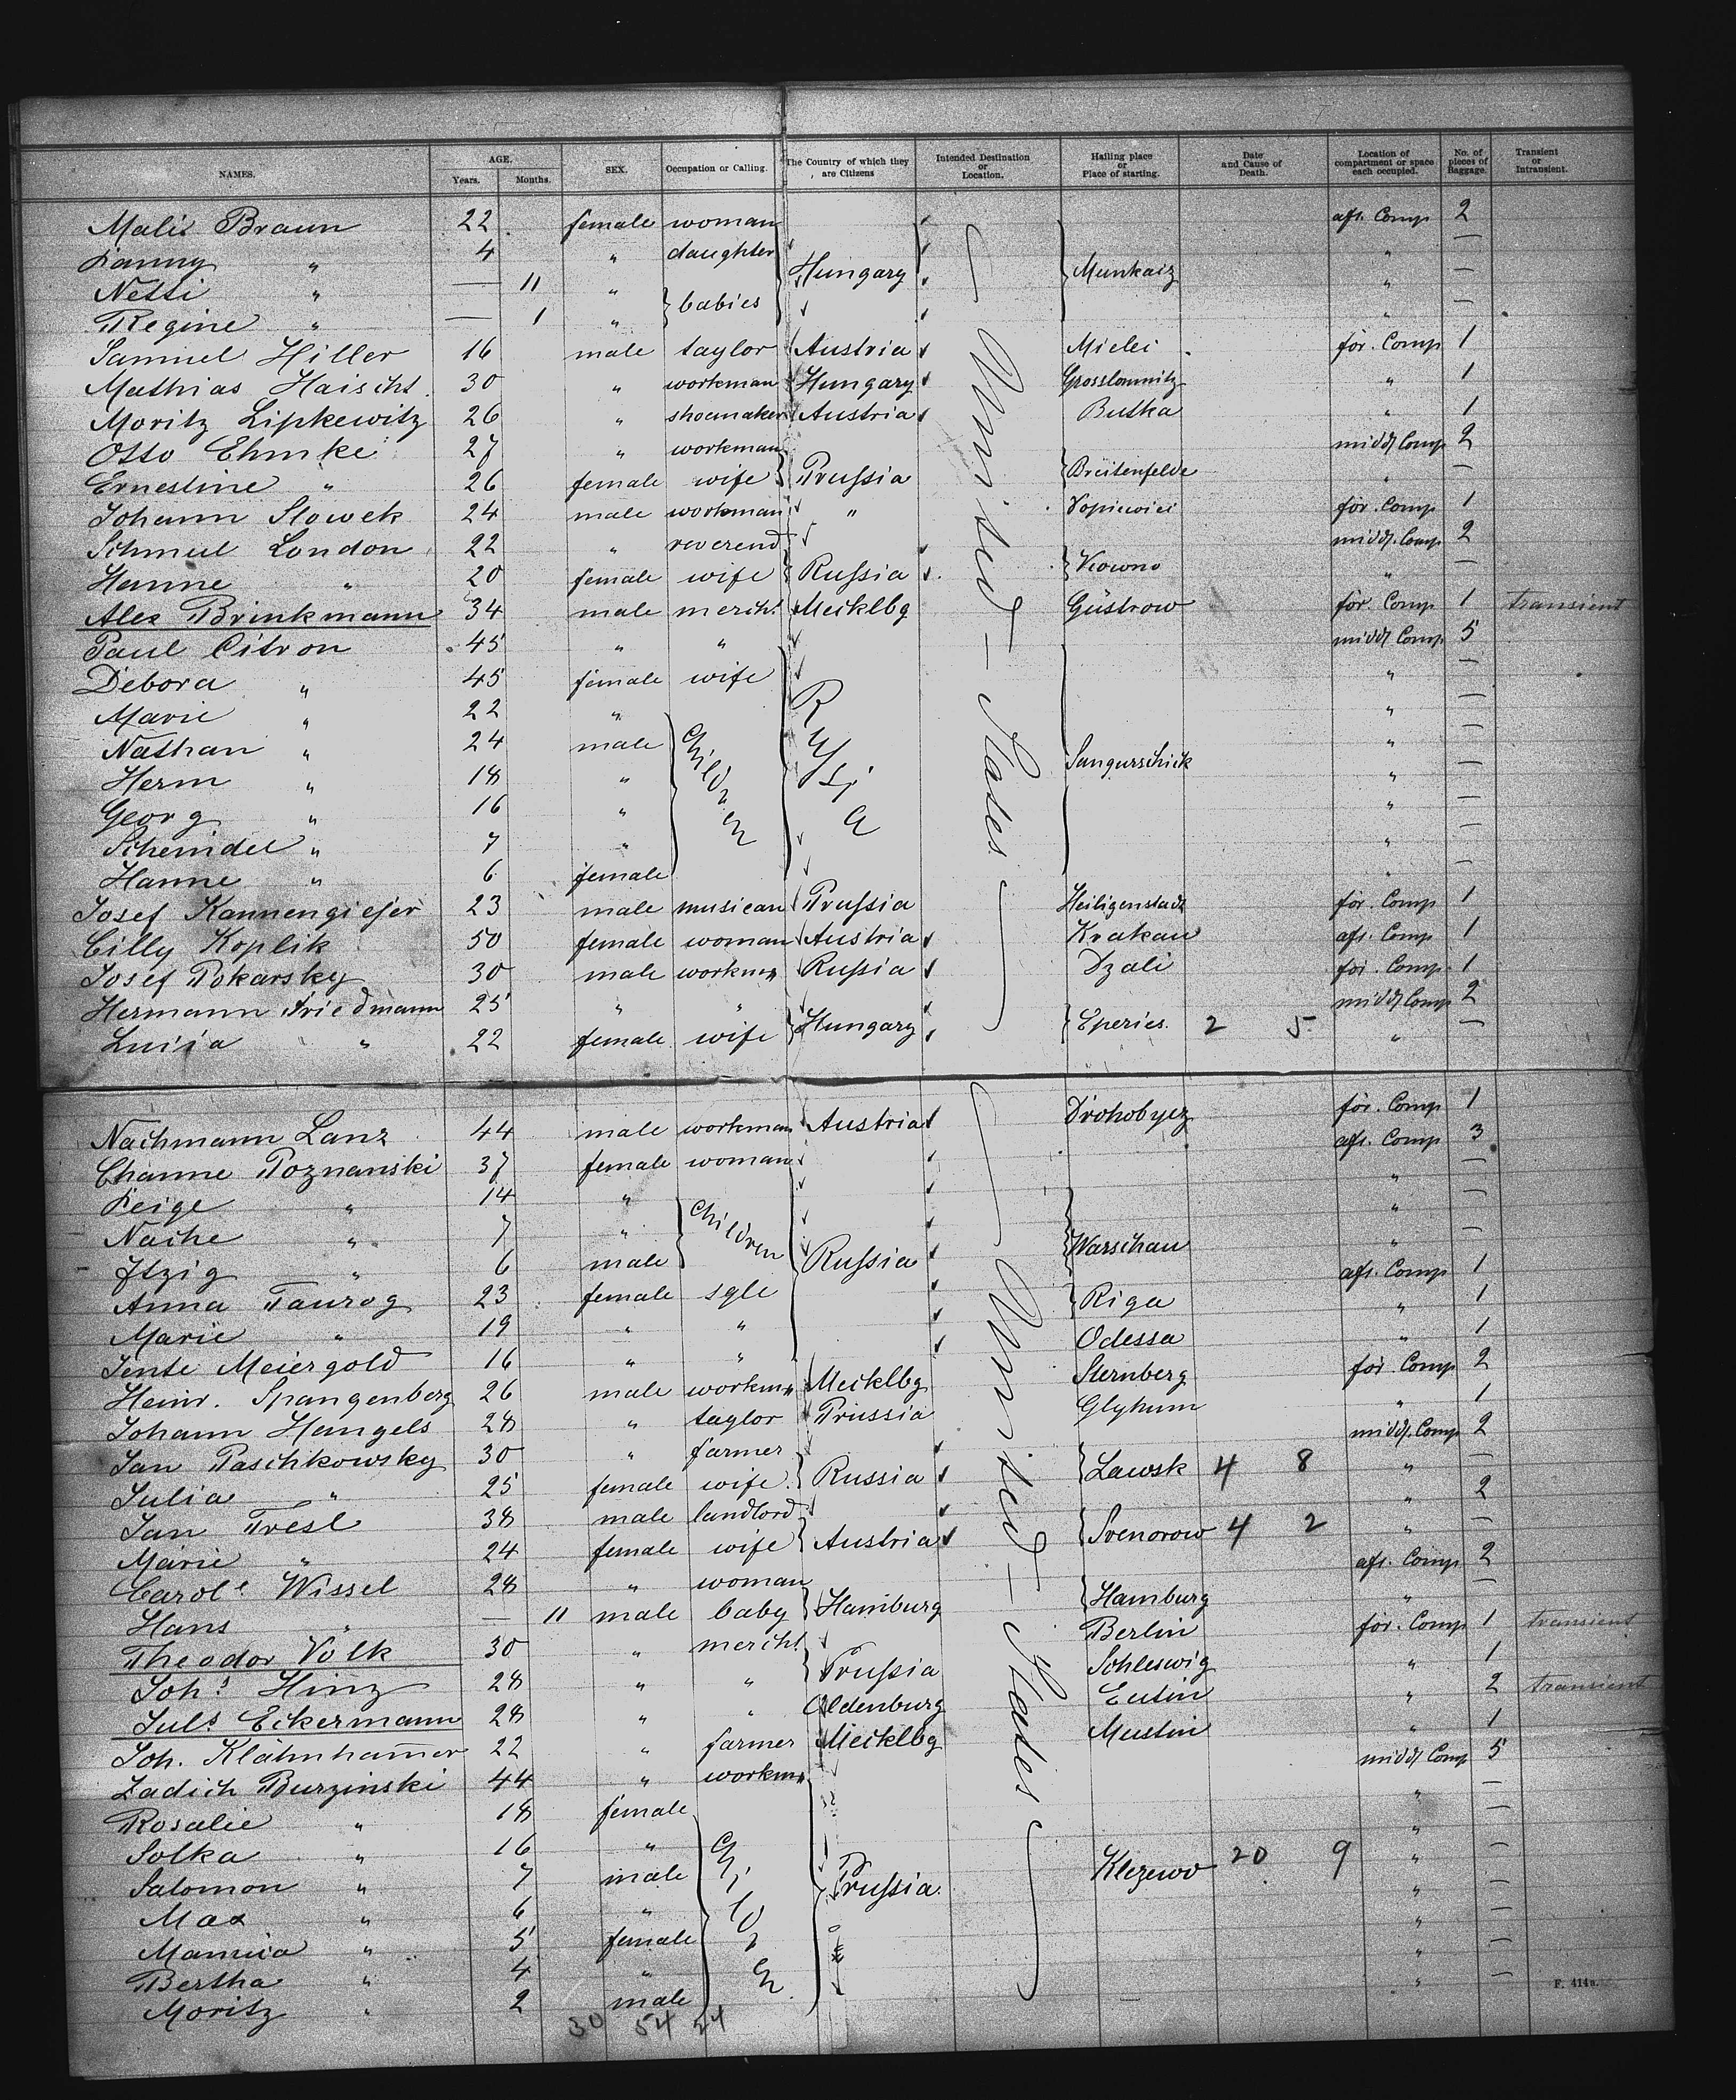 NAMES. AGE. Years. Months. SEX. Occupation or Calling. The Country of which they are Citizens Intended Destination or Location. Hailing place or Place of starting. Date and Cause of Death. Location of compartment or space each occupied. No. of pieces of Baggage. Transient or Intransient.
Malis Braun 22 female woman aft. Comp 2
Fanny " 4 " daughter " —
Netti " — 11 " babies Hungary Munkacz " —
Regine " — 1 " " —
Samuel Hiller 16 male taylor Austria Mielei för. Comp 1
Mathias Haischt 30 " workman Hungary Grosslomnitz " 1
Moritz Lipkewitz 26 " shoemaker Austria Butka " 1
Otto Ehmke 27 " workman midd. Comp 2
Ernestine " 26 female wife Prussia Breitenfelde " —
Johann Slowek 24 male workman " Vopiewiei för. Comp 1
Schmul London 22 " reverend midd. Comp 2
Hanne " 20 female wife Russia Kowno " —
Alex Brinkmann 34 male mercht. Mecklbg Güstrow för. Comp 1 transient
Paul Citron 45 " " midd. Comp 5
Debora " 45 female wife " —
Marie " 22 " " —
Nathan " 24 male children Russia " —
Herm " 18 " Sangurschick " —
Georg " 16 " " —
Scheindel " 7 " " —
Hanne " 6 female " —
Josef Kannengiesser 23 male musican Prussia Heiligenstadt för. Comp 1
Cilly Koplik 50 female woman Austria Krakau aft. Comp 1
Josef Pokarsky 30 male workmn Russia Dzali för. Comp 1
Hermann Friedmann 25 " " midd. Comp 2
Luisa " 22 female wife Hungary Eperies. 2 5 " —
United-States
Nachmann Lanz 44 male workman Austria Drohobycz för. Comp 1
Channe Poznanski 37 female woman aft. Comp 3
Feige " 14 " children " —
Nache " 7 " " —
Itzig " 6 male Russia Warschau " —
Anna Taurog 23 female sgle aft. Comp 1
Marie " 19 " " Riga " 1
Jente Meiergold 16 " " Odessa " 1
Heinr. Spangenberg 26 male workmn Mecklbg Sternberg för. Comp 2
Johann Hangels 28 " taylor Prussia Glyhum " 1
Jan Paschkowsky 30 " farmer midd. Comp 2
Julia " 25 female wife Russia Lawsk 4 8 " —
Jan Tresl 38 male landlord " 2
Marie " 24 female wife Austria Svenorow 4 2 " —
Carole Wissel 28 " woman aft. Comp 2
Hans " — 11 male baby Hamburg Hamburg " —
Theodor Volk 30 " mercht. Berlin för. Comp 1 transient
Johs Hinz 28 " " Prussia Schleswig " 1
Juls Eckermann 28 " " Oldenburg Eutin " 2 transient
Joh. Klähnhamer 22 " farmer Mecklbg Mustin " 1
Zadich Burzinski 44 " workmn midd. Comp 5
Rosalie " 18 female " —
Solka " 16 " children " —
Salomon " 7 male Prussia Klezewo 20 9 " —
Max " 6 " " —
Mamia " 5 female " —
Bertha " 4 " " —
Moritz " 2 male " —
United-States
30 54 24
F. 414a.